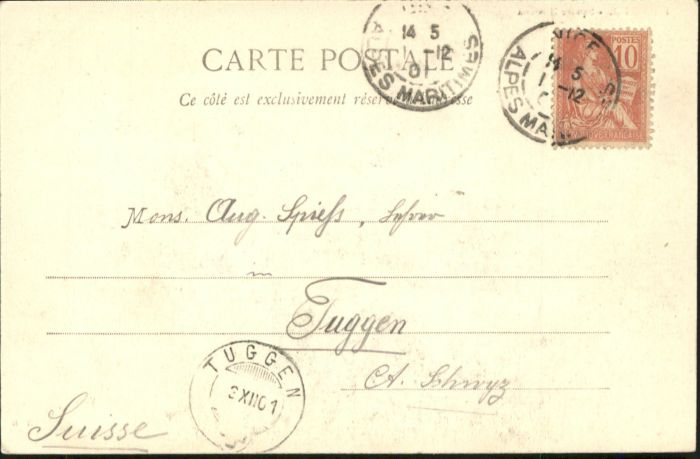 CARTE POSTALE
Ce côté est exclusivement réservé à l'adresse
14 5
1-12
01
ALPES MARITIMES
NICE
14 5
1-12
ALPES MA
POSTES
10
REPUBLIQUE FRANÇAISE
Mons. Aug. Spiess, Lehrer
in
Tuggen
Ct. Schwyz
TUGGEN
3 XII 01
Suisse